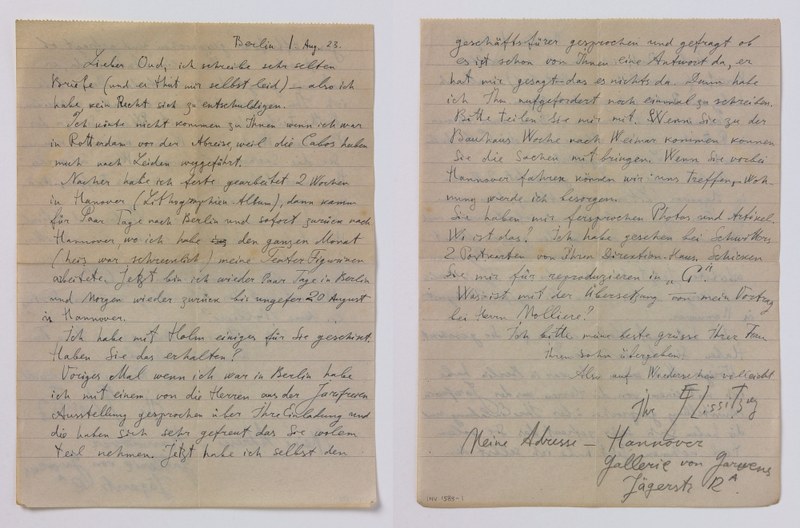 Berlin 1 Aug. 23.
Lieber Oud, ich schreibe sehr selten
Briefe (und es thut mir selbst leid) – also ich
habe kein Recht sich zu entschuldigen.
Ich könte nicht kommen zu Ihnen wenn ich war
in Rotterdam vor der Abreise, weil die Cabos haben
mich nach Leiden weggeführt.
Nacher habe ich feste gearbeitet 2 Wochen
in Hanover (Lithographien-Album), dann kamm
für Paar Tage nach Berlin und sofort zurück nach
Hannover, wo ich habe den ganzen Monat
(heis war schrecklich) meine Teater Figurinen
arbeitete. Jetzt bin ich wieder Paar Tage in Berlin
und Morgen wieder zurück bis ungefer 20 August
in Hannover.
Ich habe mit Holm einiges für Sie geschickt.
Haben Sie das erhalten?
Voriges Mal wenn ich war in Berlin habe
ich mit einem von die Herren aus der Juryfreien
Ausstellung gesprochen über Ihre Einladung und
die haben sich sehr gefreut das Sie wolen
teil nehmen. Jetzt habe ich selbst den
geschäftsfürer gesprochen und gefragt ob
es ist schon von Ihnen eine Antwort da, er
hat mir gesagt das es nichts da. Dann habe
ich Ihn aufgefordert noch einmal zu schreiben.
Bitte teilen Sie mir mit. Wenn Sie zu der
Bauhaus Woche nach Weimar kommen konnen
Sie die Sachen mitbringen. Wenn Sie vorbei
Hannover fahren können wir uns treffen, Woh-
nung werde ich besorgen.
Sie haben mir fersprochen Photos und Artikel.
Wo ist das? Ich habe gesehen bei Schwitters
2 Postkarten von Ihren Direktion-Haus. Schicken
Sie mir für reproduzieren in „G".
Was ist mit der Übersetzung von mein Vortrag
bei Herrn Molliere?
Ich bitte meine beste grüsse Ihrer Frau
Ihrem sohn übergeben
Also auf Wiedersehen vielleicht
Ihr El Lissitzky
Meine Adresse – Hannover
Gallerie von Garvens
Jägerstr
INV 1888-1